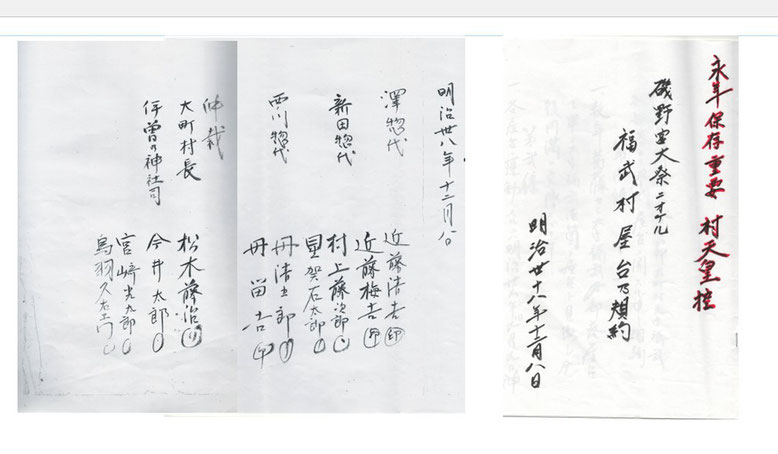 永年保存重要 村天皇控
磯野宮大祭ニオケル
福武村屋台乃規約
明治卅八年十二月八日
明治卅八年十二月八日
澤惣代
近藤清吉 印
近藤梅吉 印
新田惣代
村上藤次郎
賀石太郎
西川惣代
丹清五郎
丹留吉 印
仲裁
大町村長
松木藤治
伊曽乃神社司
今井太郎
宮崎光九郎
鳥羽久右エ門